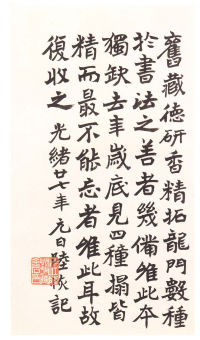 舊藏德研香精拓龍門數種
於書法之善者幾備維此本
獨缺去年歲底見四種搨皆
精而最不能忘者維此耳故
復收之 光緒廿七年元日陸恢記